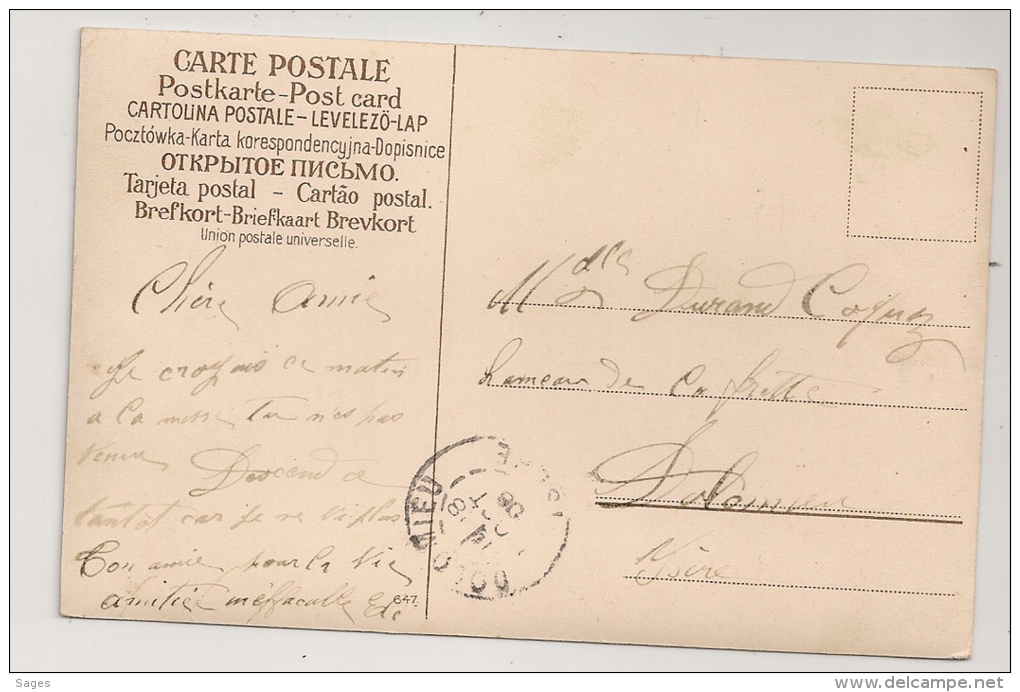 CARTE POSTALE
Postkarte-Post card
CARTOLINA POSTALE-LEVELEZÖ-LAP
Pocztówka-Karta korespondencyjna-Dopisnice
ОТКРЫТОЕ ПИСЬМО.
Tarjeta postal - Cartão postal.
Brefkort-Briefkaart Brevkort
Union postale universelle.
Chère Amie
Je croyais ce matin
a la messe tu n'es pas
venue Descend
tantôt car je ne
Ton amie pour la vie
amitié inéffacable
647
Durand
hameau de la frette
Dolomieu
Isère
DOLOMIEU
ISERE
Sages
www.delcampe.net